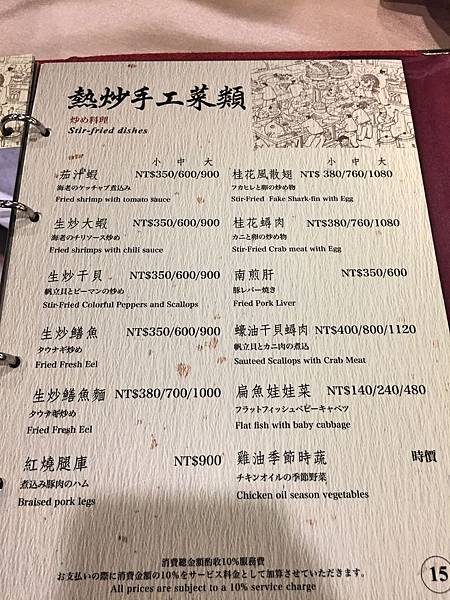 熱炒手工菜類
炒め料理
Stir-fried dishes
小 中 大
茄汁蝦 NT$350/600/900
海老のケッチャブ煮込み
Fried shrimp with tomato sauce
生炒大蝦 NT$350/600/900
海老のチリソース炒め
Fried shrimps with chili sauce
生炒干貝 NT$350/600/900
帆立貝とピーマンの炒め
Stir-Fried Colorful Peppers and Scallops
生炒鱔魚 NT$350/600/900
タウナギ炒め
Fried Fresh Eel
生炒鱔魚麵 NT$380/700/1000
タウナギ炒め
Fried Fresh Eel
紅燒腿庫 NT$900
煮込み豚肉のハム
Braised pork legs
小 中 大
桂花風散翅 NT$ 380/760/1080
フカヒレと卵の炒め物
Stir-Fried Fake Shark-fin with Egg
桂花蟳肉 NT$380/760/1080
カニと卵の炒め物
Stir-Fried Crab meat with Egg
南煎肝 NT$350/600
豚レバー焼き
Fried Pork Liver
蠔油干貝蟳肉 NT$400/800/1120
帆立貝とカニ肉の煮込
Sauteed Scallops with Crab Meat
扁魚娃娃菜 NT$140/240/480
フラットフィッシュベビーキャベツ
Flat fish with baby cabbage
雞油季節時蔬 時價
チキンオイルの季節野菜
Chicken oil season vegetables
消費總金額酌收10%服務費
お支払いの際に消費金額の10%をサービス料金として加算させていただきます。
All prices are subject to a 10% service charge
15